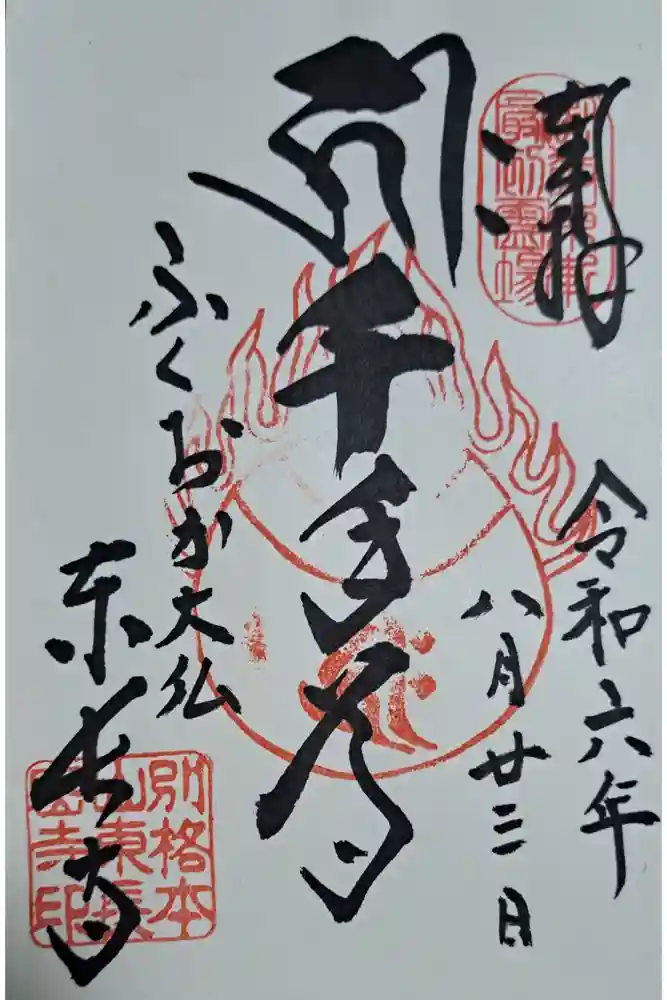 奉拝
最初霊場
令和六年
八月廿三日
千手尊
ふくおか大仏
東長寺
別格本
山東長
密寺印